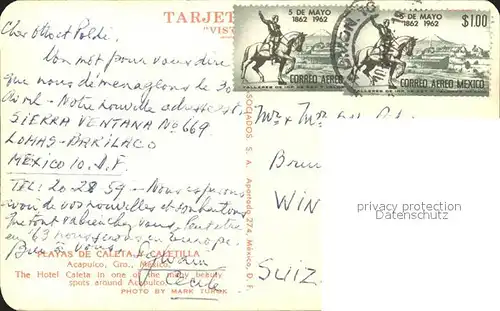 TARJET
"VIST
Cher Otto et Poldi,
Un mot pour vous dire
que nous déménageons le 30
Avril - Notre nouvelle adresse est:
SIERRA VENTANA No 669
LOMAS-BARILACO
MÉXICO 10. D.F.
TEL: 20-28-59 - Nous espérons
avoir de vos nouvelles et souhaitons
que tout va bien chez vous. Peut être
en '63 nous serons en Europe.
Bien à vous
Cécile
PLAYAS DE CALETA CALETILLA
Acapulco, Gro., México.
The Hotel Caleta in one of the many beauty
spots around Acapulco.
PHOTO BY MARK TUROK
ASOCIADOS, S. A. Apartado 274, México, D. F.
5 DE MAYO
1862 1962
CORREO AEREO
5 DE MAYO
1862 1962
$1.00
CORREO AEREO MEXICO
Mr +
WIN
SUIZ
privacy protection
copyright ansichtskarten